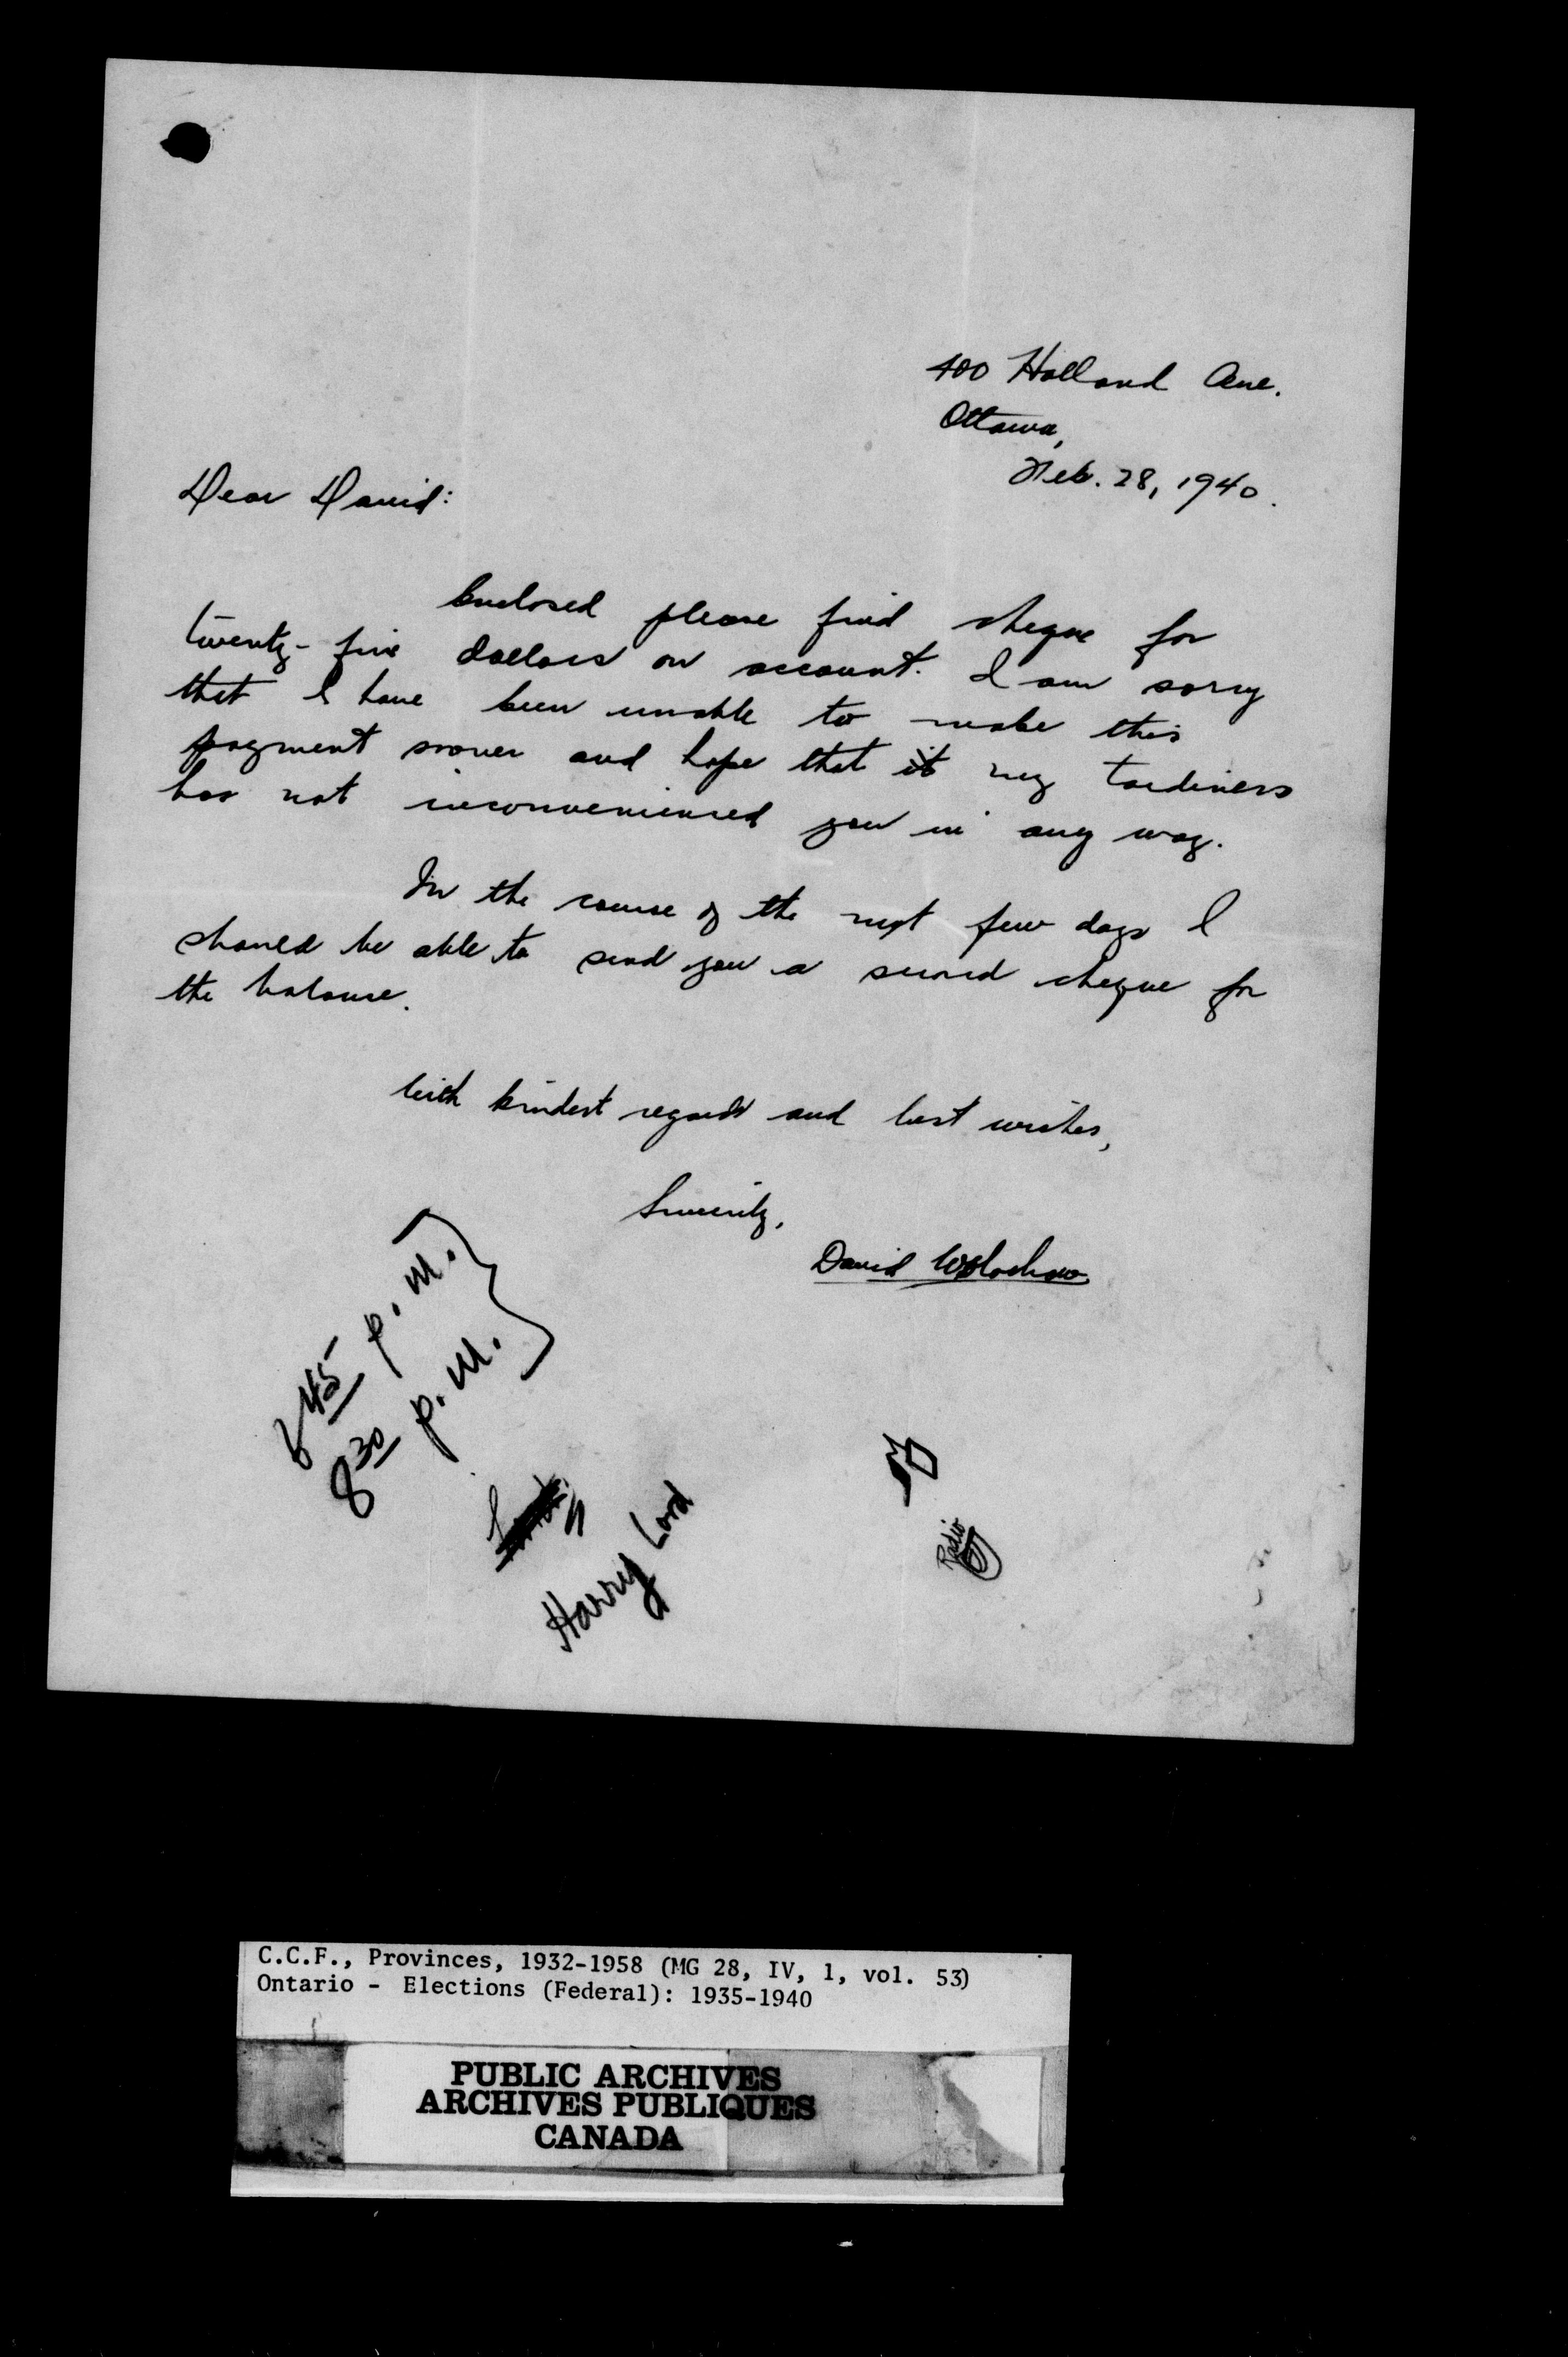 400 Holland Ave.
Ottawa,
Feb. 28, 1940.
Dear David:
Enclosed please find cheque for
twenty-five dollars on account. I am sorry
that I have been unable to make this
payment sooner and hope that it my tardiness
has not inconvenienced you in any way.
In the course of the next few days I
should be able to send you a second cheque for
the balance.
With kindest regards and best wishes,
Sincerely,
David
45 p.m.
8 30 p.m.
Harry Lord
Radio
C.C.F., Provinces, 1932-1958 (MG 28, IV, 1, vol. 53)
Ontario - Elections (Federal): 1935-1940
PUBLIC ARCHIVES
ARCHIVES PUBLIQUES
CANADA